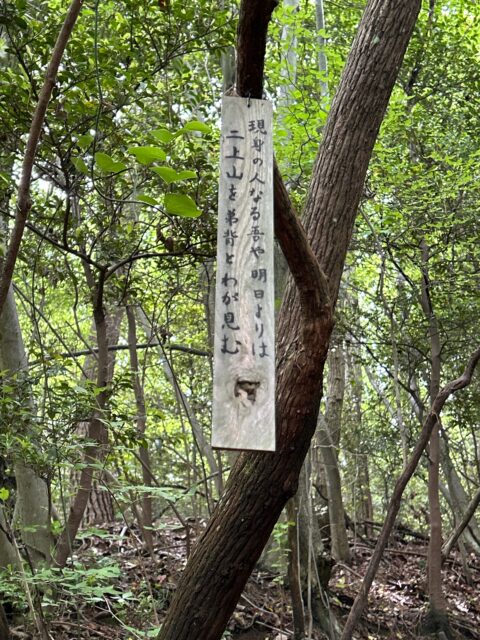 現身の人なる吾や明日よりは
二上山を弟背とわが見む